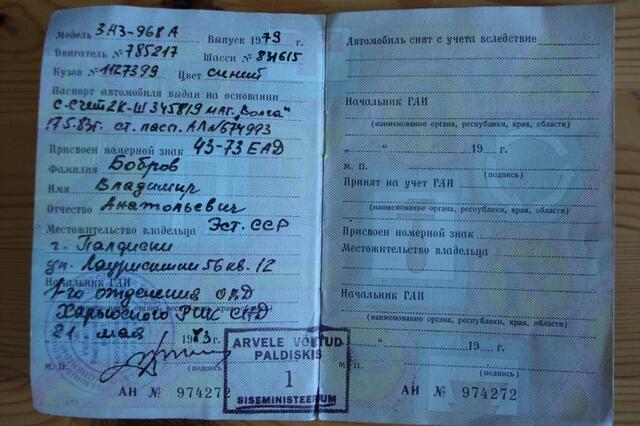 Модель ЗАЗ-968А Выпуск 1979 г.
Двигатель № 785217 Шасси № 831615
Кузов № 1127399 Цвет синий
Паспорт автомобиля выдан на основании
с.счет 2К-Ш 345819 маг. „Волга"
17.5.83г. ст. пасп. АЛ№674993
Присвоен номерной знак 43-73 ЕАД
Фамилия Бобров
Имя Владимир
Отчество Анатольевич
Местожительство владельца Эст. ССР
г. Палдиски
ул. Лауристини 56 кв. 12
Начальник ГАИ
1-го отделения ОВД
Харьюского РИК
21 мая 1983 г.
М. П. (подпись)
АН № 974272
ARVELE VÕETUD
PALDISKIS
1
SISEMINISTEERIUM
Автомобиль снят с учета вследствие
Начальник ГАИ
(наименование органа, республики, края, области)
„ “ 19 г.
М. П. (подпись)
Принят на учет ГАИ
(наименование органа, республики, края, области)
Присвоен номерной знак
Местожительство владельца
Начальник ГАИ
(наименование органа, республики, края, области)
„ “ 19 г.
М. П. (подпись)
АН № 974272